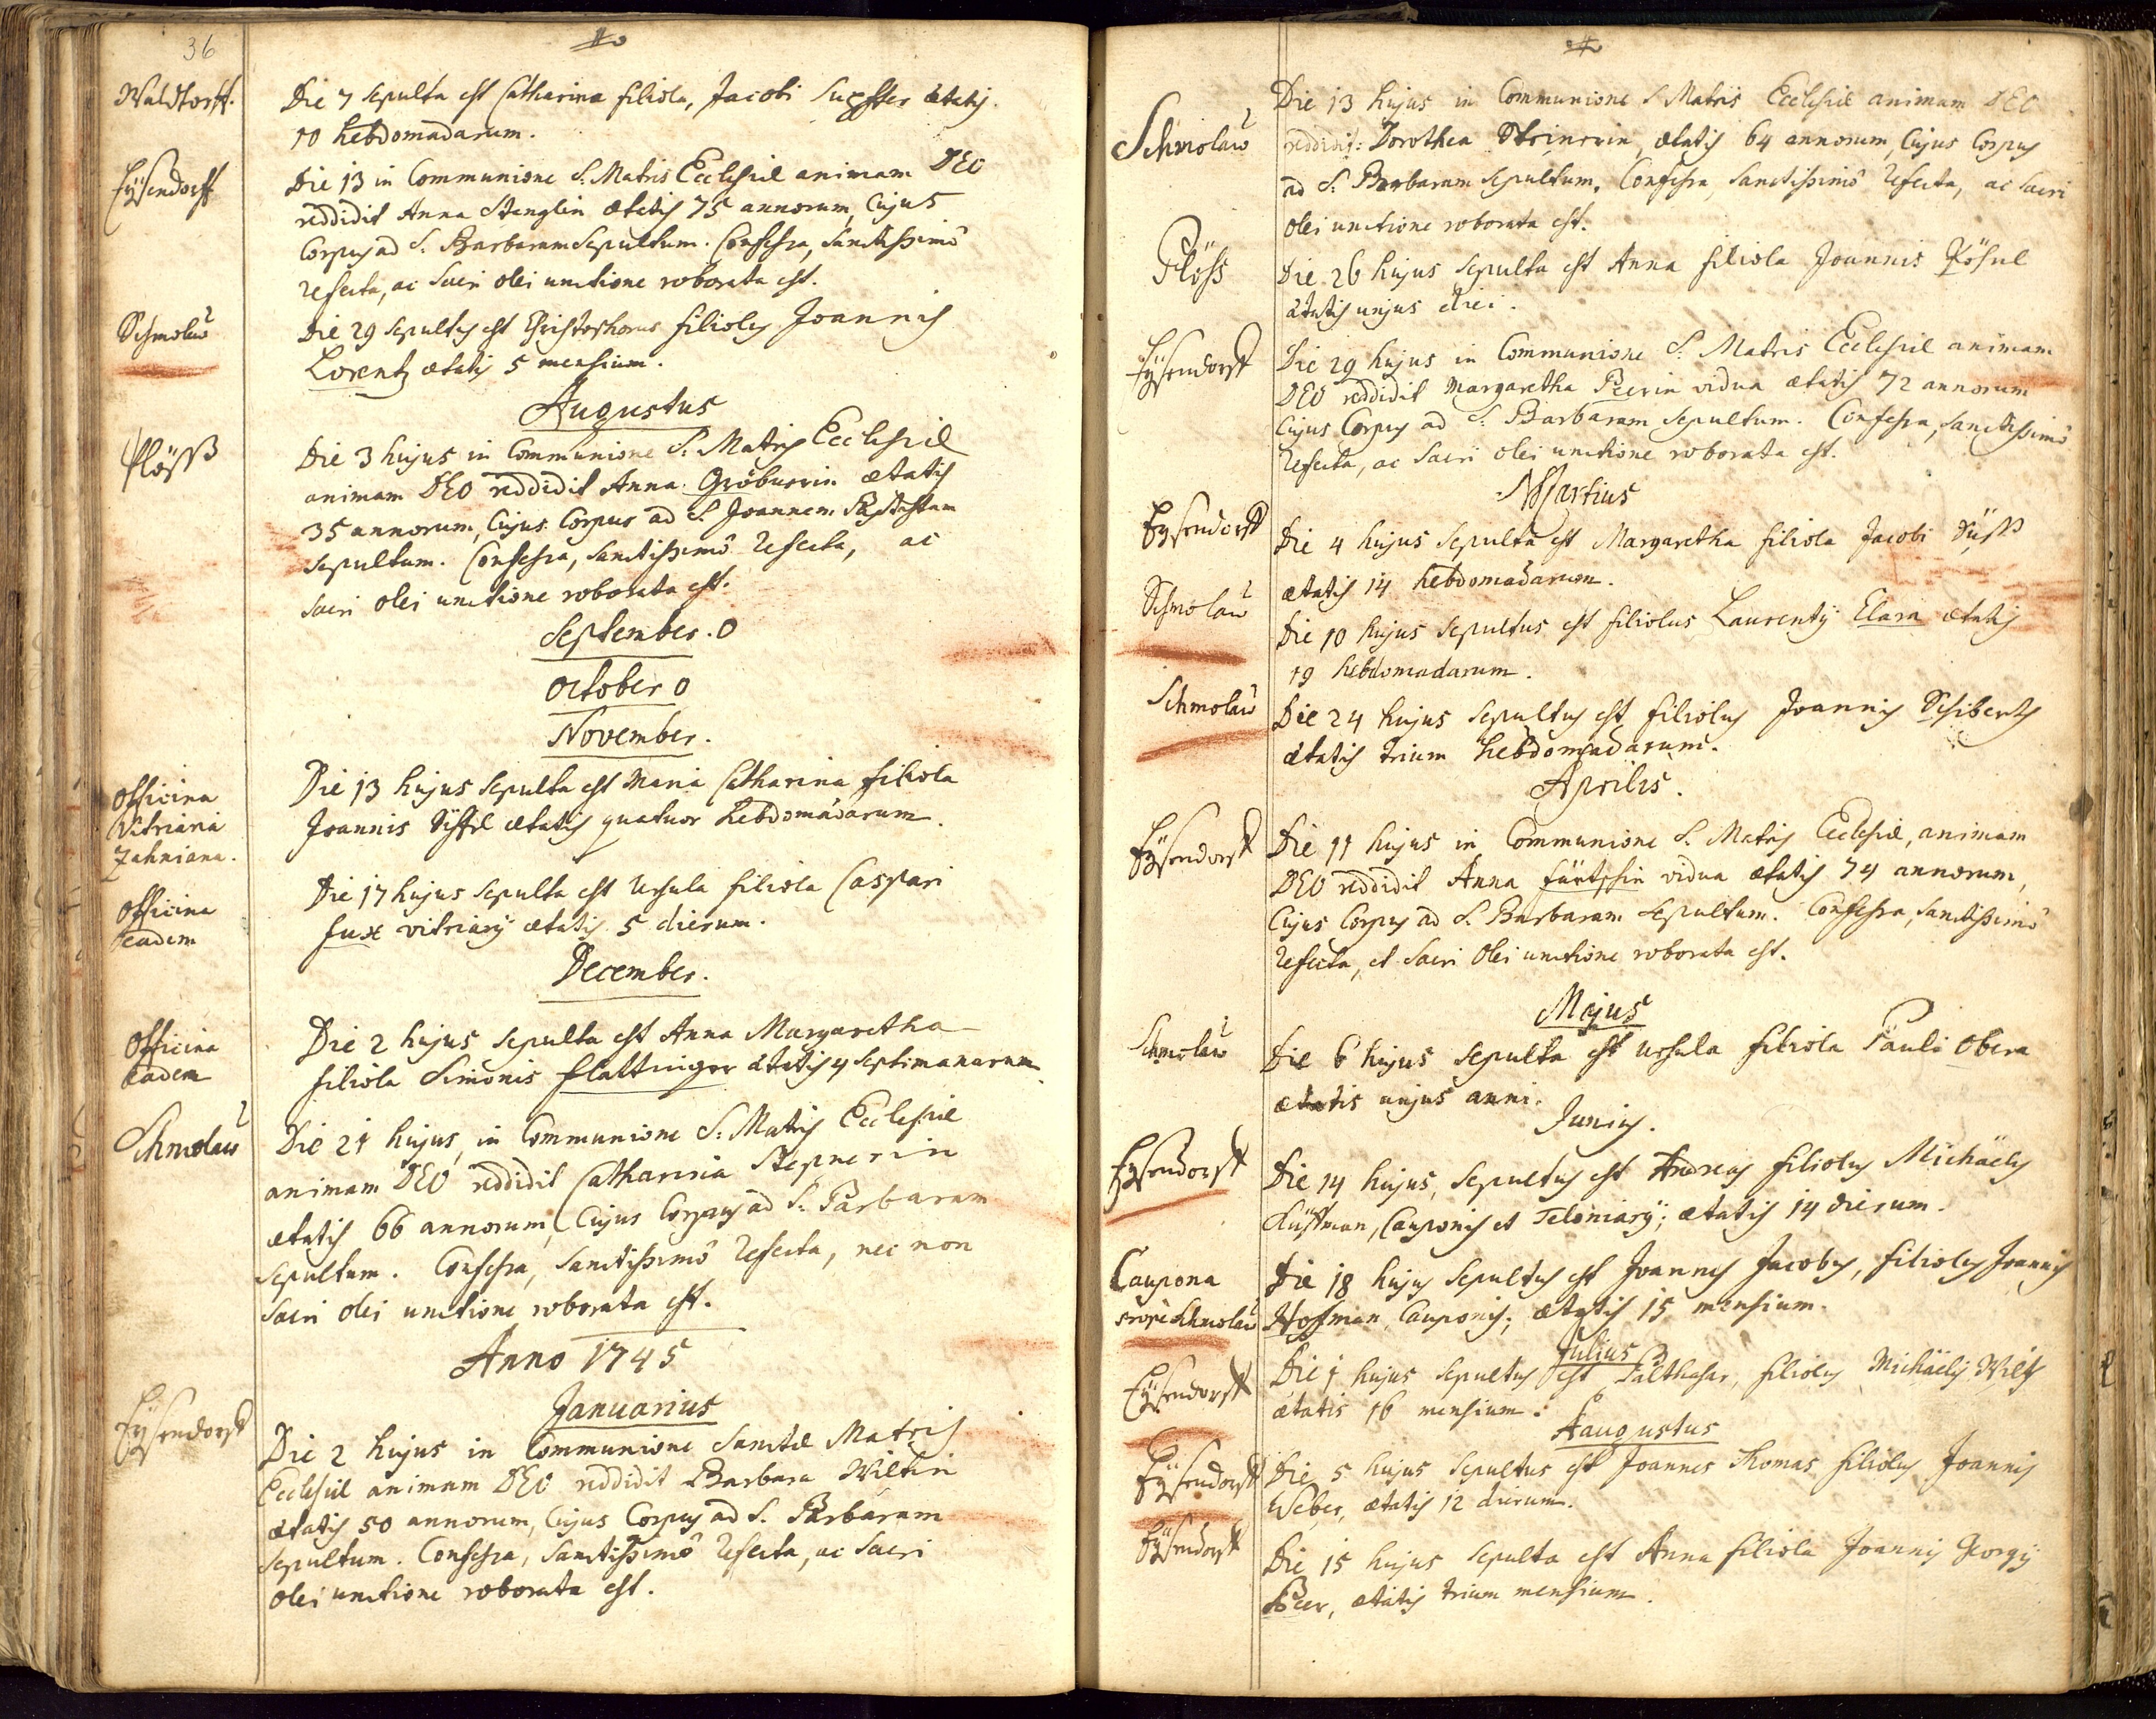 36
Waldtorff.
Die 7 sepulta est Catharina filiola, Jacobi Supffer ætatis
10 hebdomadarum.
Eÿsendorff
Die 13 in Communione S. Matris Ecclesiæ animam DEO
reddidit Anna Stenglin ætatis 75 annorum, Cujus
Corpus ad S. Barbaram sepultum. Confessa, Sanctissimô
refecta, ac Sacri olei unctione roborata est.
Schmolau
Die 29 sepultus est Christophorus filiolus Joannis
Lorentz ætatis 5 mensium.
Augustus
Plöss
Die 3 hujus in Communione S. Matris Ecclesiæ
animam DEO reddidit Anna Gröbnerin ætatis
35 annorum, Cujus Corpus ad S. Joannem Baptistam
sepultum. Confessa, Sanctissimô refecta, ac
sacri olei unctione roborata est.
September. 0
October 0
November.
Officina
Vitriaria
Zahniana.
Die 13 hujus sepulta est Maria Catharina filiola
Joannis Siffel ætatis quatuor hebdomadarum.
Officina
eadem
Die 17 hujus sepulta est Ursula filiola Caspari
Fux vitriarÿ ætatis 5 dierum.
December.
Officina
eadem
Die 2 hujus sepulta est Anna Margaretha
filiola Simonis Flattinger ætatis 4 septimanarum.
Schmolau
Die 21 hujus, in Communione S. Matris Ecclesiæ
animam DEO reddidit Catharina Stepnerin
ætatis 66 annorum, Cujus Corpus ad S. Barbaram
sepultum. Confessa, Sanctissimô refecta, nec non
Sacri olei unctione roborata est.
Anno 1745
Januarius
Eÿsendorff
Die 2 hujus in Communione Sanctæ Matris
Ecclesiæ animam DEO reddidit Barbara Wiltin
ætatis 50 annorum, Cujus Corpus ad S. Barbaram
sepultum. Confessa, Sanctissimô refecta, ac Sacri
olei unctione roborata est.
Schmolau
Die 13 hujus in Communione S. Matris Ecclesiæ animam DEO
reddidit: Dorothea Steinerin, ætatis 64 annorum, Cujus Corpus
ad S. Barbaram sepultum. Confessa, Sanctissimô refecta, ac Sacri
olei unctione roborata est.
Plöss
Die 26 hujus sepulta est Anna filiola Joannis Rösul
ætatis unjus diei.
Eÿsendorff
Die 29 hujus in Communione S. Matris Ecclesiæ animam
DEO reddidit Margaretha Beerin vidua ætatis 72 annorum
Cujus Corpus ad S. Barbaram sepultum. Confessa, Sanctissimô
refecta, ac Sacri olei unctione roborata est.
Martius
Eysendorff
Die 4 hujus sepulta est Margaretha filiola Jacobi Süss
ætatis 14 hebdomadarum.
Schmolau
Die 10 hujus sepultus est filiolus Laurentÿ Elara ætatis
19 hebdomadarum.
Schmolau
Die 24 hujus sepultus est filiolus Joannis Schiberts
ætatis trium hebdomadarum.
Aprilis.
Eÿsendorff
Die 11 hujus in Communione S. Matris Ecclesiæ, animam
DEO reddidit Anna vidua ætatis 74 annorum,
Cujus Corpus ad S. Barbaram sepultum. Confessa, Sanctissimô
refecta, et Sacri Olei unctione roborata est.
Majus
Schmolau
Die 6 hujus sepulta est Ursula filiola Pauli Obera
ætatis unjus anni.
Junius.
Eysendorff
Die 14 hujus, sepultus est Andreas filiolus Michäelis
Cauponis et Teloniarÿ; ætatis 14 dierum.
Caupona
prope Schmolau
Die 18 hujus sepultus est Joannes Jacobus, filiolus Joannis
Hofman, Cauponis, ætatis 15 mensium.
Julius
Eÿsendorff
Die 1 hujus sepultus est Balthasar, filiolus Michäelis Wilt
ætatis 16 mensium.
Aaugustus
Eÿsendorff
Die 5 hujus sepultus est Joannes Thomas filiolus Joannis
Weber, ætatis 12 dierum.
Eÿsendorff
Die 15 hujus sepulta est Anna filiola Joannis Georgÿ
Beer, ætatis trium mensium.